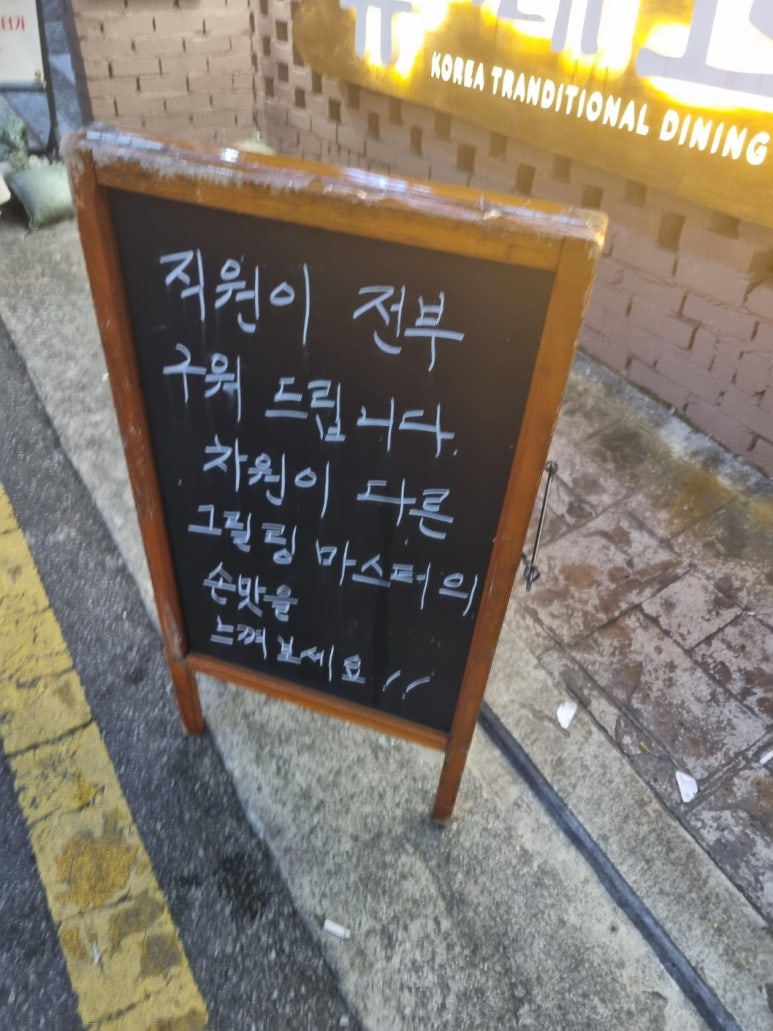 KOREA TRANDITIONAL DINING
직원이 전부
구워 드립니다.
차원이 다른
그릴링 마스터의
손맛을
느껴보세요!!